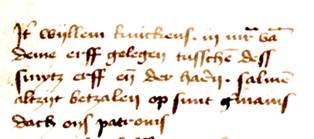 Jt̃ wyllem kuickens · iij mr̃ vã
deme erff gelegen tusschẽ dess
smytz erff eñ der haeñ · salmẽ
altzijt betzalen op sunt g̃mains
dach ons patrons